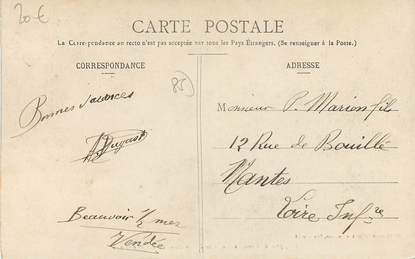 20€
CARTE POSTALE
La Correspondance au recto n'est pas acceptée par tous les Pays Étrangers. (Se renseigner à la Poste.)
CORRESPONDANCE
ADRESSE
85
Bonnes vacances
Dugast
Beauvoir s/ mer
Vendée
Monsieur P. Marion fils
12 Rue de Bouillé
Nantes
Loire Infre